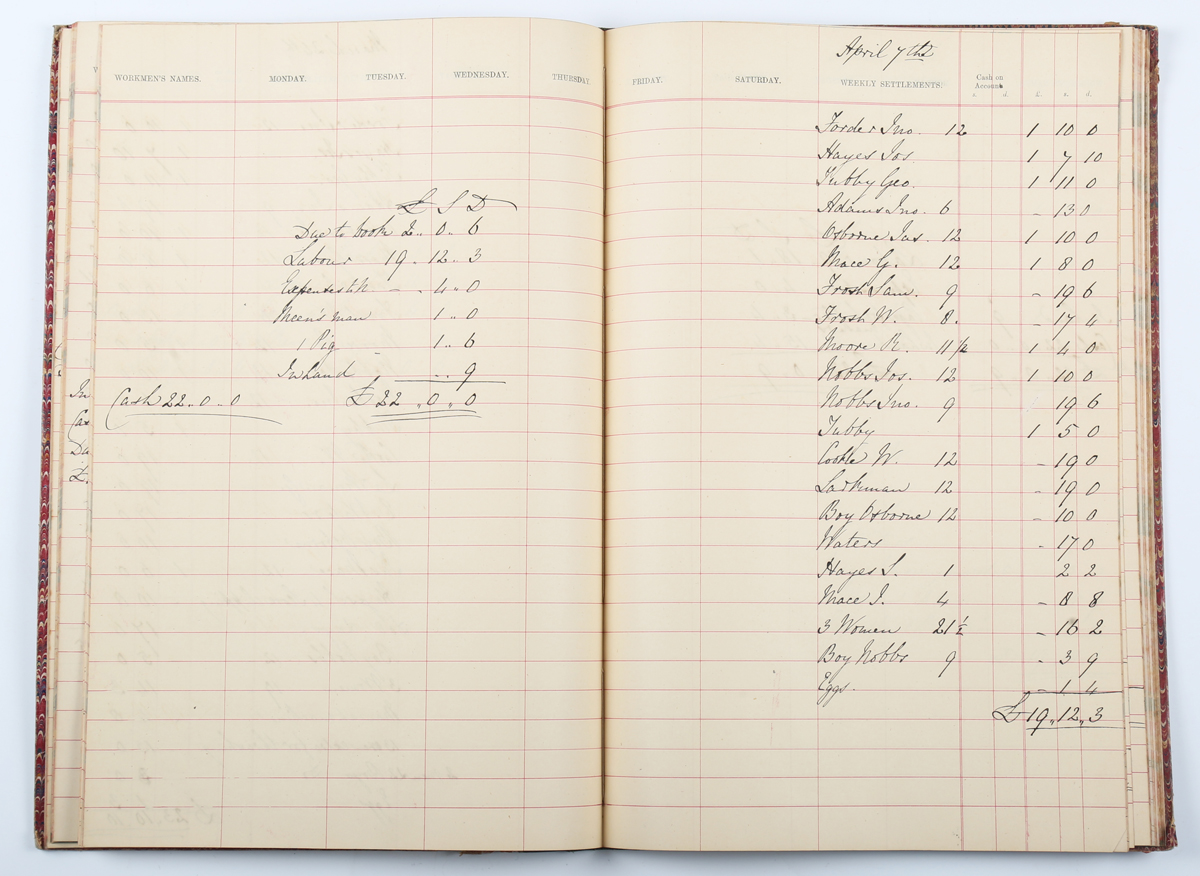 WORKMEN'S NAMES. MONDAY. TUESDAY. WEDNESDAY. THURSDAY.
£ S D
Due to book 2 .. 0 .. 6
Labour 19 .. 12 .. 3
Expenses - . 4 .. 0
man 1 .. 0
1 Pig - 1 .. 6
In hand .. 9
Cash 22 .. 0 .. 0 £22 .. 0 .. 0
In
Cas
Du
£.
April 7th
FRIDAY. SATURDAY. WEEKLY SETTLEMENTS. Cash on Account s. d. £. s. d.
Forder Jno. 12 1 10 0
Hayes Jos 1 7 10
Tubby Geo. 1 11 0
Adams Jno. 6 - 13 0
Osborne Jas. 12 1 10 0
Mace G. 12 1 8 0
Frosh Sam. 9 - 19 6
Frosh W. 8. - 17 4
Moore R. 11 1/2 1 4 0
Nobbs Jos. 12 1 10 0
Nobbs Jno. 9 19 6
Tubby 1 5 0
Cooke W. 12 - 19 0
Larkman 12 - 19 0
Boy Osborne 12 - 10 0
Waters - 17 0
Hayes S. 1 2 2
Mace J. 4 - 8 8
3 Women 21 1/2 - 16 2
Boy Nobbs 9 - 3 9
Eggs. - 1 4
£19 .. 12 .. 3